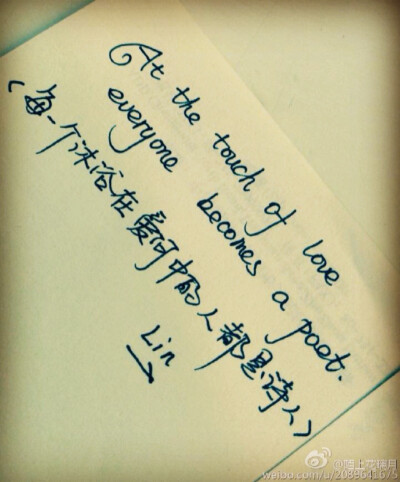 At the touch of love
everyone becomes a poet.
(每一个沐浴在爱河中的人都是诗人)
Lin
weibo.com/u/2088641675